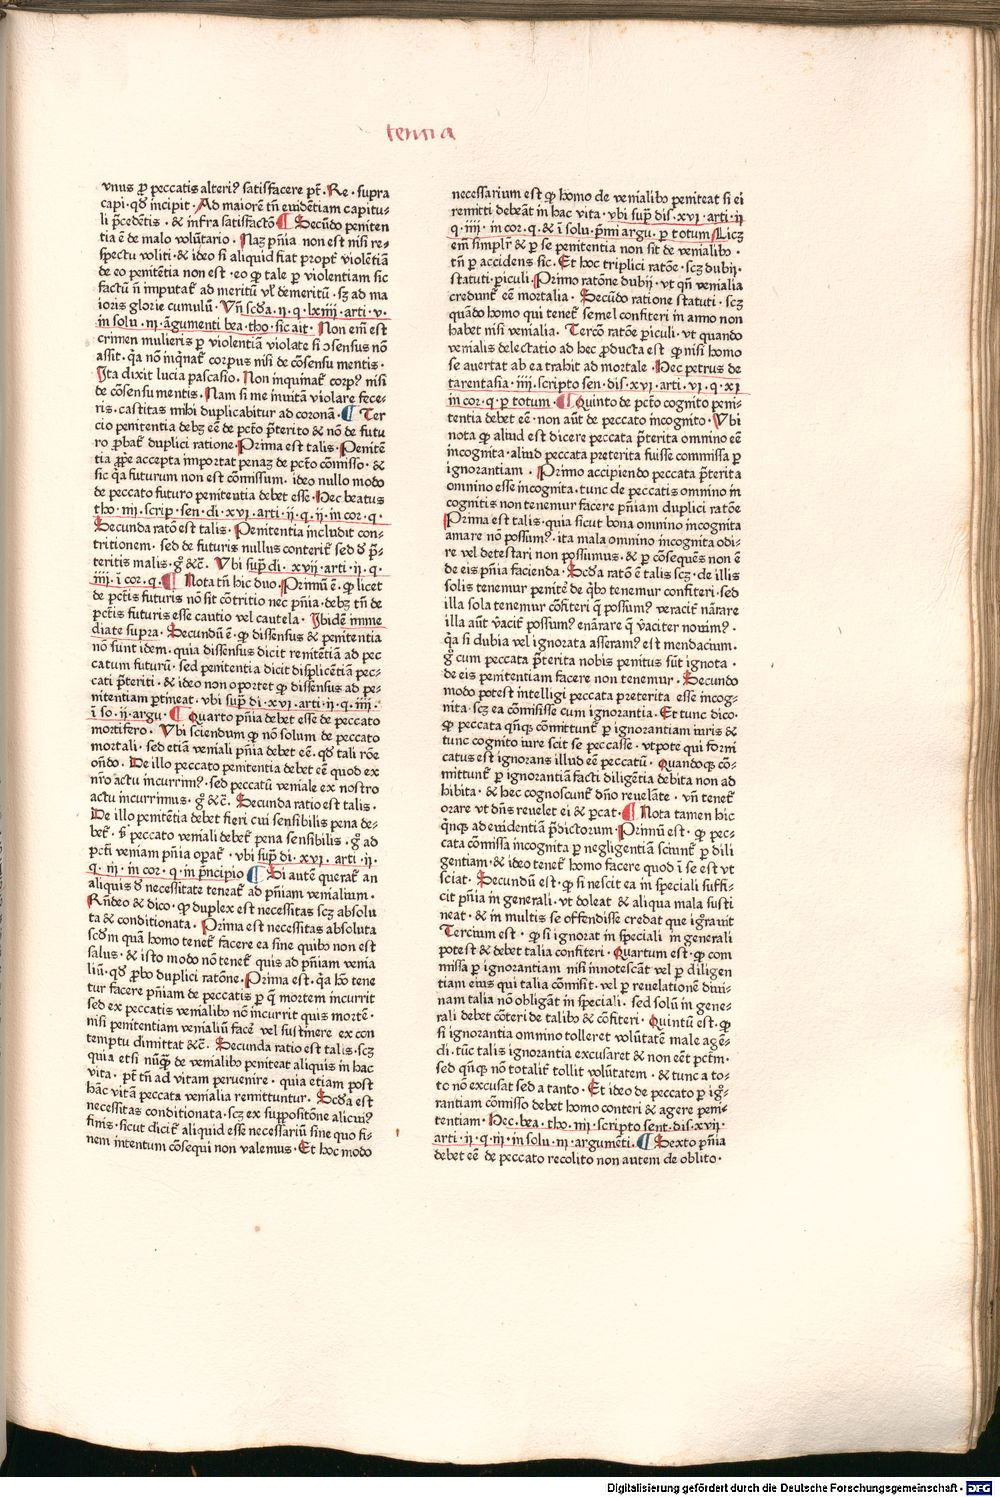 tercia
vnus ꝓ peccatis alteriꝰ satisfacere pt̄. Re. supra
capi. qđ incipit. Ad maiorē tn̄ euidentiam capitu-
li p̄cedētis. & infra satisfactō ¶ Secūdo peniten
tia ē de malo volūtario. Naꝫ pn̄ia non est nisi re-
spectu voliti. & ideo si aliquid fiat propt̄ violētiā
de eo penitētia non est. eo ꝙ tale ꝑ violentiam sic
factū n̄ imputat̄ ad meritū vl̄ demeritū. sꝫ ad ma
ioris glorie cumulū. Vn̄ scđa. ij. q. lxiiij. arti. v.
in solu. iij. āgumenti bea. tho. sic ait. Non em̄ est
crimen mulieris ꝑ violentiā violate si ɔsensus nō
assit. q̄a nō inq̄nat̄ corpus nisi de cōsensu mentis.
Ita dixit lucia pascasio. Non inquinat̄ corpꝰ nisi
de cōsensu mentis. Nam si me inuitā violare fece-
ris. castitas mihi duplicabitur ad coronā. ¶ Ter
cio penitentia debꝫ eē de pctō p̄terito & nō de futu
ro ꝓbat̄ duplici ratione. Prima est talis. Penitē
tia ꝓpe accepta importat penaꝫ de pctō cōmisso. &
sic q̄a futurum non est cōmissum. ideo nullo modo
de peccato futuro penitentia debet esse. Hec beatus
tho. iiij. scrip. sen. di. xvi. arti. ij. q. ij. in cor. q.
Secunda ratō est talis. Penitentia includit con-
tritionem. sed de futuris nullus conterit̄ sed đ p̄-
teritis malis. gͦ &c̄. Vbi sup̄ di. xvij. arti. ij. q.
iiij. ī cor. q. ¶ Nota tn̄ hic duo. Primū ē. ꝙ licet
de pctīs futuris nō sit cōtritio nec pn̄ia. debꝫ tn̄ de
pctīs futuris esse cautio vel cautela. Ibidē imme
diate supra. Secundū ē. ꝙ dissensus & penitentia
nō sunt idem. quia dissensus dicit renitētiā ad pec
catum futurū. sed penitentia dicit displicētiā pec-
cati p̄teriti. & ideo non oportet ꝙ dissensus ad pe-
nitentiam ꝑtineat. vbi sup̄ di. xvi. arti. ij. q. iiij.
ī so. ij. argu. ¶ Quarto pn̄ia debet esse de peccato
mortifero. Vbi sciendum ꝙ nō solum de peccato
mortali. sed etiā veniali pn̄ia debet eē. qđ tali rōe
on̄do. De illo peccato penitentia debet eē quod ex
nr̄o actu incurrimꝰ. sed peccatū veniale ex nostro
actu incurrimus. gͦ &c̄. Secunda ratio est talis.
De illo penitētia debet fieri cui sensibilis pena de-
bet̄. s̄ peccato veniali debet̄ pena sensibilis. gͦ ad
pctī veniam pn̄ia opat̄. vbi sup̄ di. xvi. arti. ij.
q. iij. in cor. q. in p̄ncipio ¶ Si autē querat̄ an
aliquis đ necessitate teneat̄ ad pn̄iam venialium.
Rn̄deo & dico. ꝙ duplex est necessitas scꝫ absolu
ta & conditionata. Prima est necessitas absoluta
scđm quā homo tenet̄ facere ea sine quibꝰ non est
salus. & isto modo nō tenet̄ quis ad pn̄iam venia
liū. qđ ꝓbo duplici ratōne. Prima est. q̄a hō tene
tur facere pn̄iam de peccatis ꝑ q̄ mortem incurrit
sed ex peccatis venialibꝰ nō incurrit quis mortē.
nisi penitentiam venialiū facē vel sustinere ex con
temptu dimittat &c̄. Secunda ratio est talis. scꝫ
quia etsi nūq̄ꝫ de venialibꝰ peniteat aliquis in hac
vita. pt̄ tn̄ ad vitam peruenire. quia etiam post
hāc vitā peccata venialia remittuntur. Scđa est
necessitas conditionata. scꝫ ex suppositōne alicuiꝰ
finis. sicut dicit̄ aliquid esse necessariū sine quo fi-
nem intentum cōsequi non valemus. Et hoc modo
necessarium est ꝙ homo de venialibꝰ peniteat si ei
remitti debeāt in hac vita. vbi sup̄ dis. xvi. arti. ij
q. iiij. in cor. q. & ī solu. p̄mi argu. ꝑ totum. Licꝫ
em̄ simpl̄r & ꝑ se penitentia non sit de venialibꝰ.
tn̄ ꝑ accidens sic. Et hoc triplici ratōe. scꝫ dubij.
statuti. ꝑiculi. Primo ratōne dubij. vt qn̄ venialia
credunt̄ eē mortalia. Secūdo ratione statuti. scꝫ
quādo homo qui tenet̄ semel confiteri in anno non
habet nisi venialia. Tercō ratōe ꝑiculi. vt quando
venialis delectatio ad hec ꝓducta est ꝙ nisi homo
se auertat ab ea trahit ad mortale. Hec petrus de
tarentasia. iiij. scripto sen. dis. xvi. arti. vi. q. xi
in cor. q. ꝑ totum. ¶ Quinto de pctō cognito peni-
tentia debet eē. non aūt de peccato incognito. Vbi
nota ꝙ aliud est dicere peccata p̄terita omnino eē
incognita. aliud peccata preterita fuisse commissa ꝑ
ignorantiam. Primo accipiendo peccata p̄terita
omnino esse incognita. tunc de peccatis omnino in
cognitis non tenemur facere pn̄iam duplici ratōe
Prima est talis. quia sicut bona omnino incognita
amare nō possumꝰ. ita mala omnino incognita odi-
re vel detestari non possumus. & ꝑ cōsequēs non ē
de eis pn̄ia facienda. Scđa ratō ē talis scꝫ. de illis
solis tenemur penitēe de q̄bꝰ tenemur confiteri. sed
illa sola tenemur cōfiteri q̄ possumꝰ veracit̄ nārare
illa aūt v̄acit̄ possumꝰ enārare q̄ v̄aciter nouimꝰ.
q̄a si dubia vel ignorata asseramꝰ est mendacium.
gͦ cum peccata p̄terita nobis penitus sūt ignota.
de eis penitentiam facere non tenemur. Secundo
modo potest intelligi peccata preterita esse incog-
nita. scꝫ ea cōmisisse cum ignorantia. Et tunc dico.
ꝙ peccata qn̄qꝫ cōmittunt̄ ꝑ ignorantiam iuris &
tunc cognito iure scit se peccasse. vtpote qui forni
catus est ignorans illud eē peccatū. Quandoqꝫ cō-
mittunt̄ ꝑ ignorantiā facti diligētia debita non ad
hibita. & hec cognoscunt̄ dn̄o reuelāte. vn̄ tenet̄
orare vt dn̄s reuelet ei & ꝑcat. ¶ Nota tamen hic
qn̄qꝫ ad euidentiā p̄dictorum. Primū est. ꝙ pec-
cata cōmissa incognita ꝑ negligentiam sciunt̄ ꝑ dili
gentiam. & ideo tenet̄ homo facere quod ī se est vt
sciat. Secundū est. ꝙ si nescit ea in speciali suffi-
cit pn̄ia in generali. vt doleat & aliqua mala susti
neat. & in multis se offendisse credat que igͦrauit
Tercium est. ꝙ si ignorat in speciali in generali
potest & debet talia confiteri. Quartum est. ꝙ com
missa ꝑ ignorantiam nisi innotescāt vel ꝑ diligen
tiam eius qui talia cōmisit. vel ꝑ reuelationē diui-
nam talia nō obligāt in speciali. sed solū in gene-
rali debet cōteri de talibꝰ & cōfiteri. Quintū est. ꝙ
si ignorantia omnino tolleret volūtatem male agē-
di. tūc talis ignorantia excusaret & non eēt pctm̄.
sed qn̄qꝫ nō totalit̄ tollit volūtatem. & tunc a to-
to nō excusat sed a tanto. Et ideo de peccato ꝑ igͦ-
rantiam cōmisso debet homo conteri & agere peni-
tentiam. Hec. bea. tho. iiij scripto sent. dis. xvij.
arti. ij. q. iij. in solu. iij. argumēti. ¶ Sexto pn̄ia
debet eē de peccato recolito non autem de oblito.
Digitalisierung gefördert durch die Deutsche Forschungsgemeinschaft - DFG